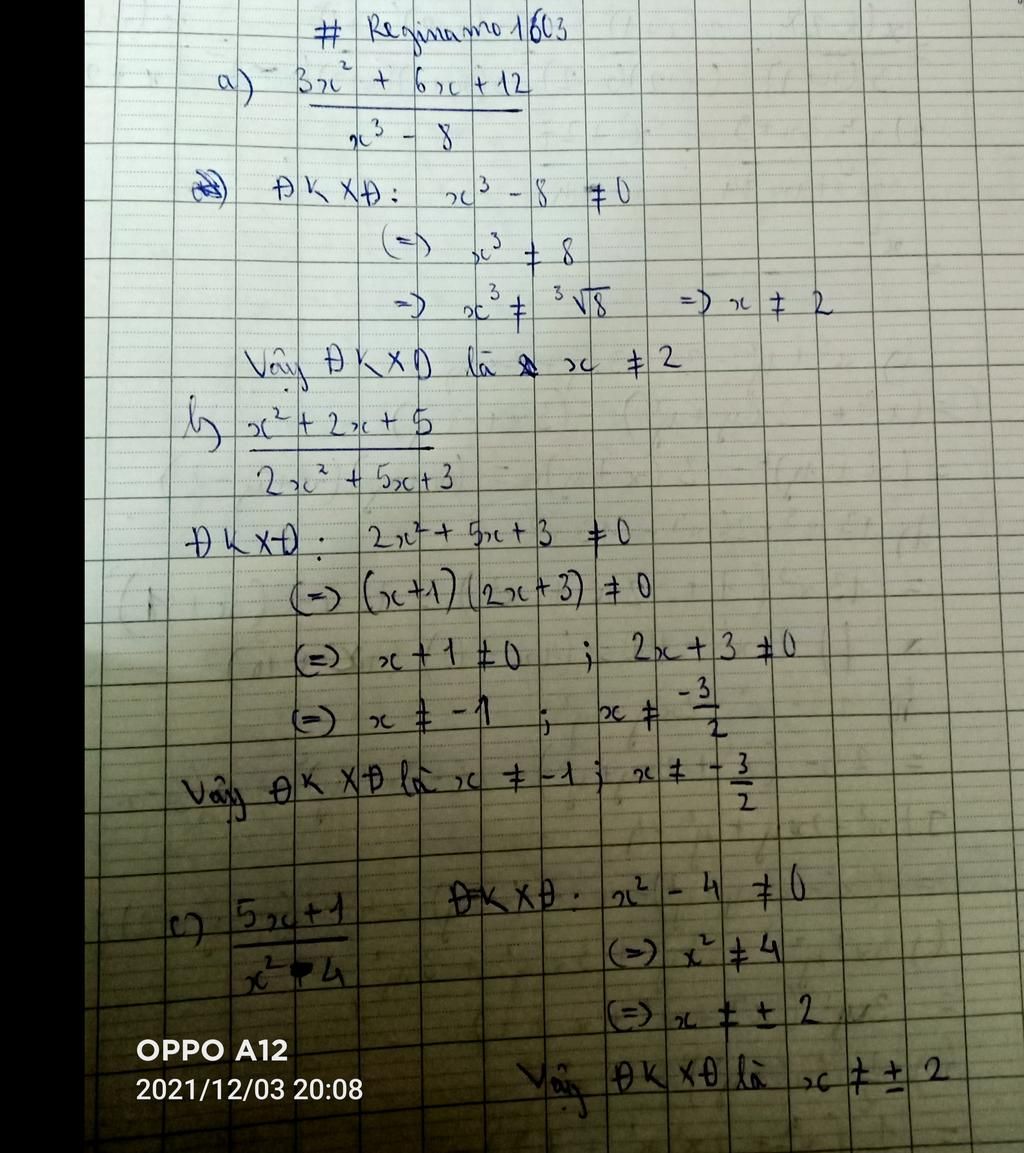 # Reginamo1603
a) 3x² + 6x + 12
x³ - 8
ĐKXĐ: x³ - 8 ≠ 0
(=) x³ ≠ 8
=) x³ ≠ ³√8 =) x ≠ 2
Vậy ĐKXĐ là x ≠ 2
b) x² + 2x + 5
2x² + 5x + 3
ĐKXĐ: 2x² + 5x + 3 ≠ 0
(=) (x+1)(2x+3) ≠ 0
(=) x + 1 ≠ 0 ; 2x + 3 ≠ 0
(=) x ≠ -1 ; x ≠ -3/2
Vậy ĐKXĐ là x ≠ -1 ; x ≠ -3/2
c) 5x + 1 ĐKXĐ: x² - 4 ≠ 0
x² - 4
(=) x² ≠ 4
(=) x ≠ ± 2
Vậy ĐKXĐ là x ≠ ± 2
OPPO A12
2021/12/03 20:08